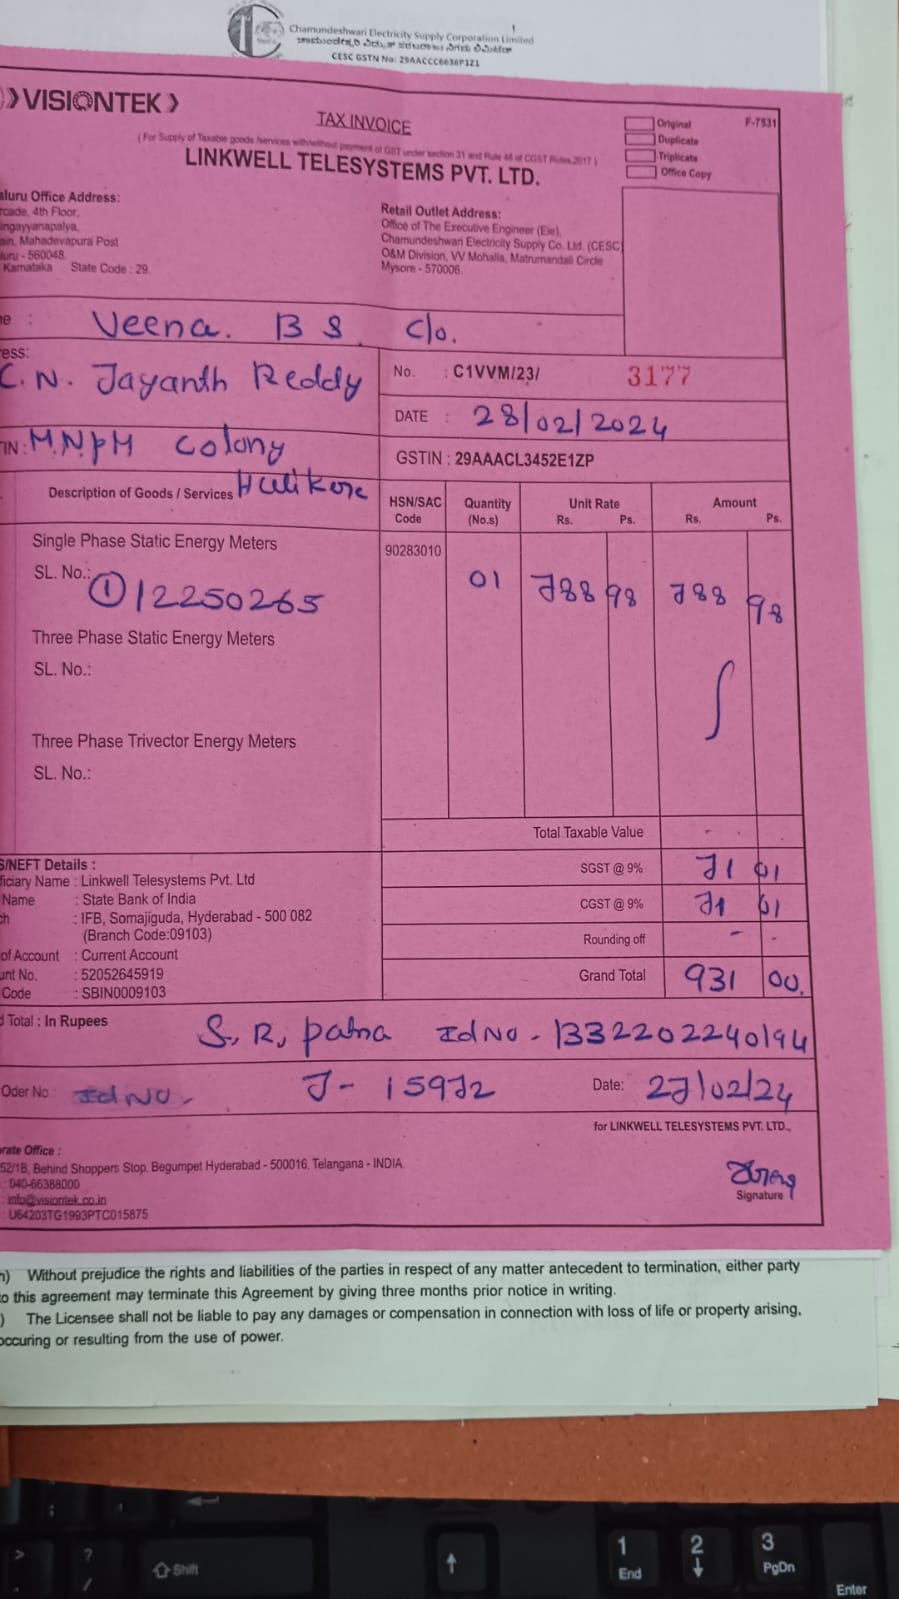 Chamundeshwari Electricity Supply Corporation Limited
CESC GSTN No: 29AACCC6636P1Z1
VISIONTEK
TAX INVOICE
( For Supply of Taxable goods /services with/without payment of GST under section 31 and Rule 46 of CGST Rules 2017 )
LINKWELL TELESYSTEMS PVT. LTD.
Original
Duplicate
Triplicate
Office Copy
F-7531
aluru Office Address:
rcade, 4th Floor,
ngayyanapalya,
ain, Mahadevapura Post
luru - 560048.
Karnataka State Code : 29.
Retail Outlet Address:
Office of The Executive Engineer (Ele),
Chamundeshwari Electricity Supply Co. Ltd. (CESC)
O&M Division, VV Mohalla, Matrumandali Circle
Mysore - 570006.
e : Veena. B S. C/o.
ess:
C. N. Jayanth Reddy
No. : C1VVM/23/ 3177
DATE : 28/02/2024
TIN : M.N.PM Colony
GSTIN : 29AAACL3452E1ZP
Hulikere
Description of Goods / Services
HSN/SAC Code
Quantity (No.s)
Unit Rate
Rs. Ps.
Amount
Rs. Ps.
Single Phase Static Energy Meters
90283010
SL. No.: ① 12250265
01 788 98 788 98
Three Phase Static Energy Meters
SL. No.:
Three Phase Trivector Energy Meters
SL. No.:
Total Taxable Value - -
S/NEFT Details :
ficiary Name : Linkwell Telesystems Pvt. Ltd
Name : State Bank of India
ch : IFB, Somajiguda, Hyderabad - 500 082
(Branch Code:09103)
of Account : Current Account
unt No. : 52052645919
Code : SBIN0009103
SGST @ 9% 71 01
CGST @ 9% 71 01
Rounding off - -
Grand Total 931 00.
d Total : In Rupees
S. R, patna Id No - 1332202240194
Oder No : Id No - J - 15972 Date: 27/02/24
for LINKWELL TELESYSTEMS PVT. LTD.,
Signature
rate Office :
52/1B, Behind Shoppers Stop, Begumpet Hyderabad - 500016, Telangana - INDIA.
: 040-66388000
: info@visiontek.co.in
: U64203TG1993PTC015875
h) Without prejudice the rights and liabilities of the parties in respect of any matter antecedent to termination, either party
o this agreement may terminate this Agreement by giving three months prior notice in writing.
) The Licensee shall not be liable to pay any damages or compensation in connection with loss of life or property arising,
occuring or resulting from the use of power.
Shift
1
End
2
3
PgDn
Enter